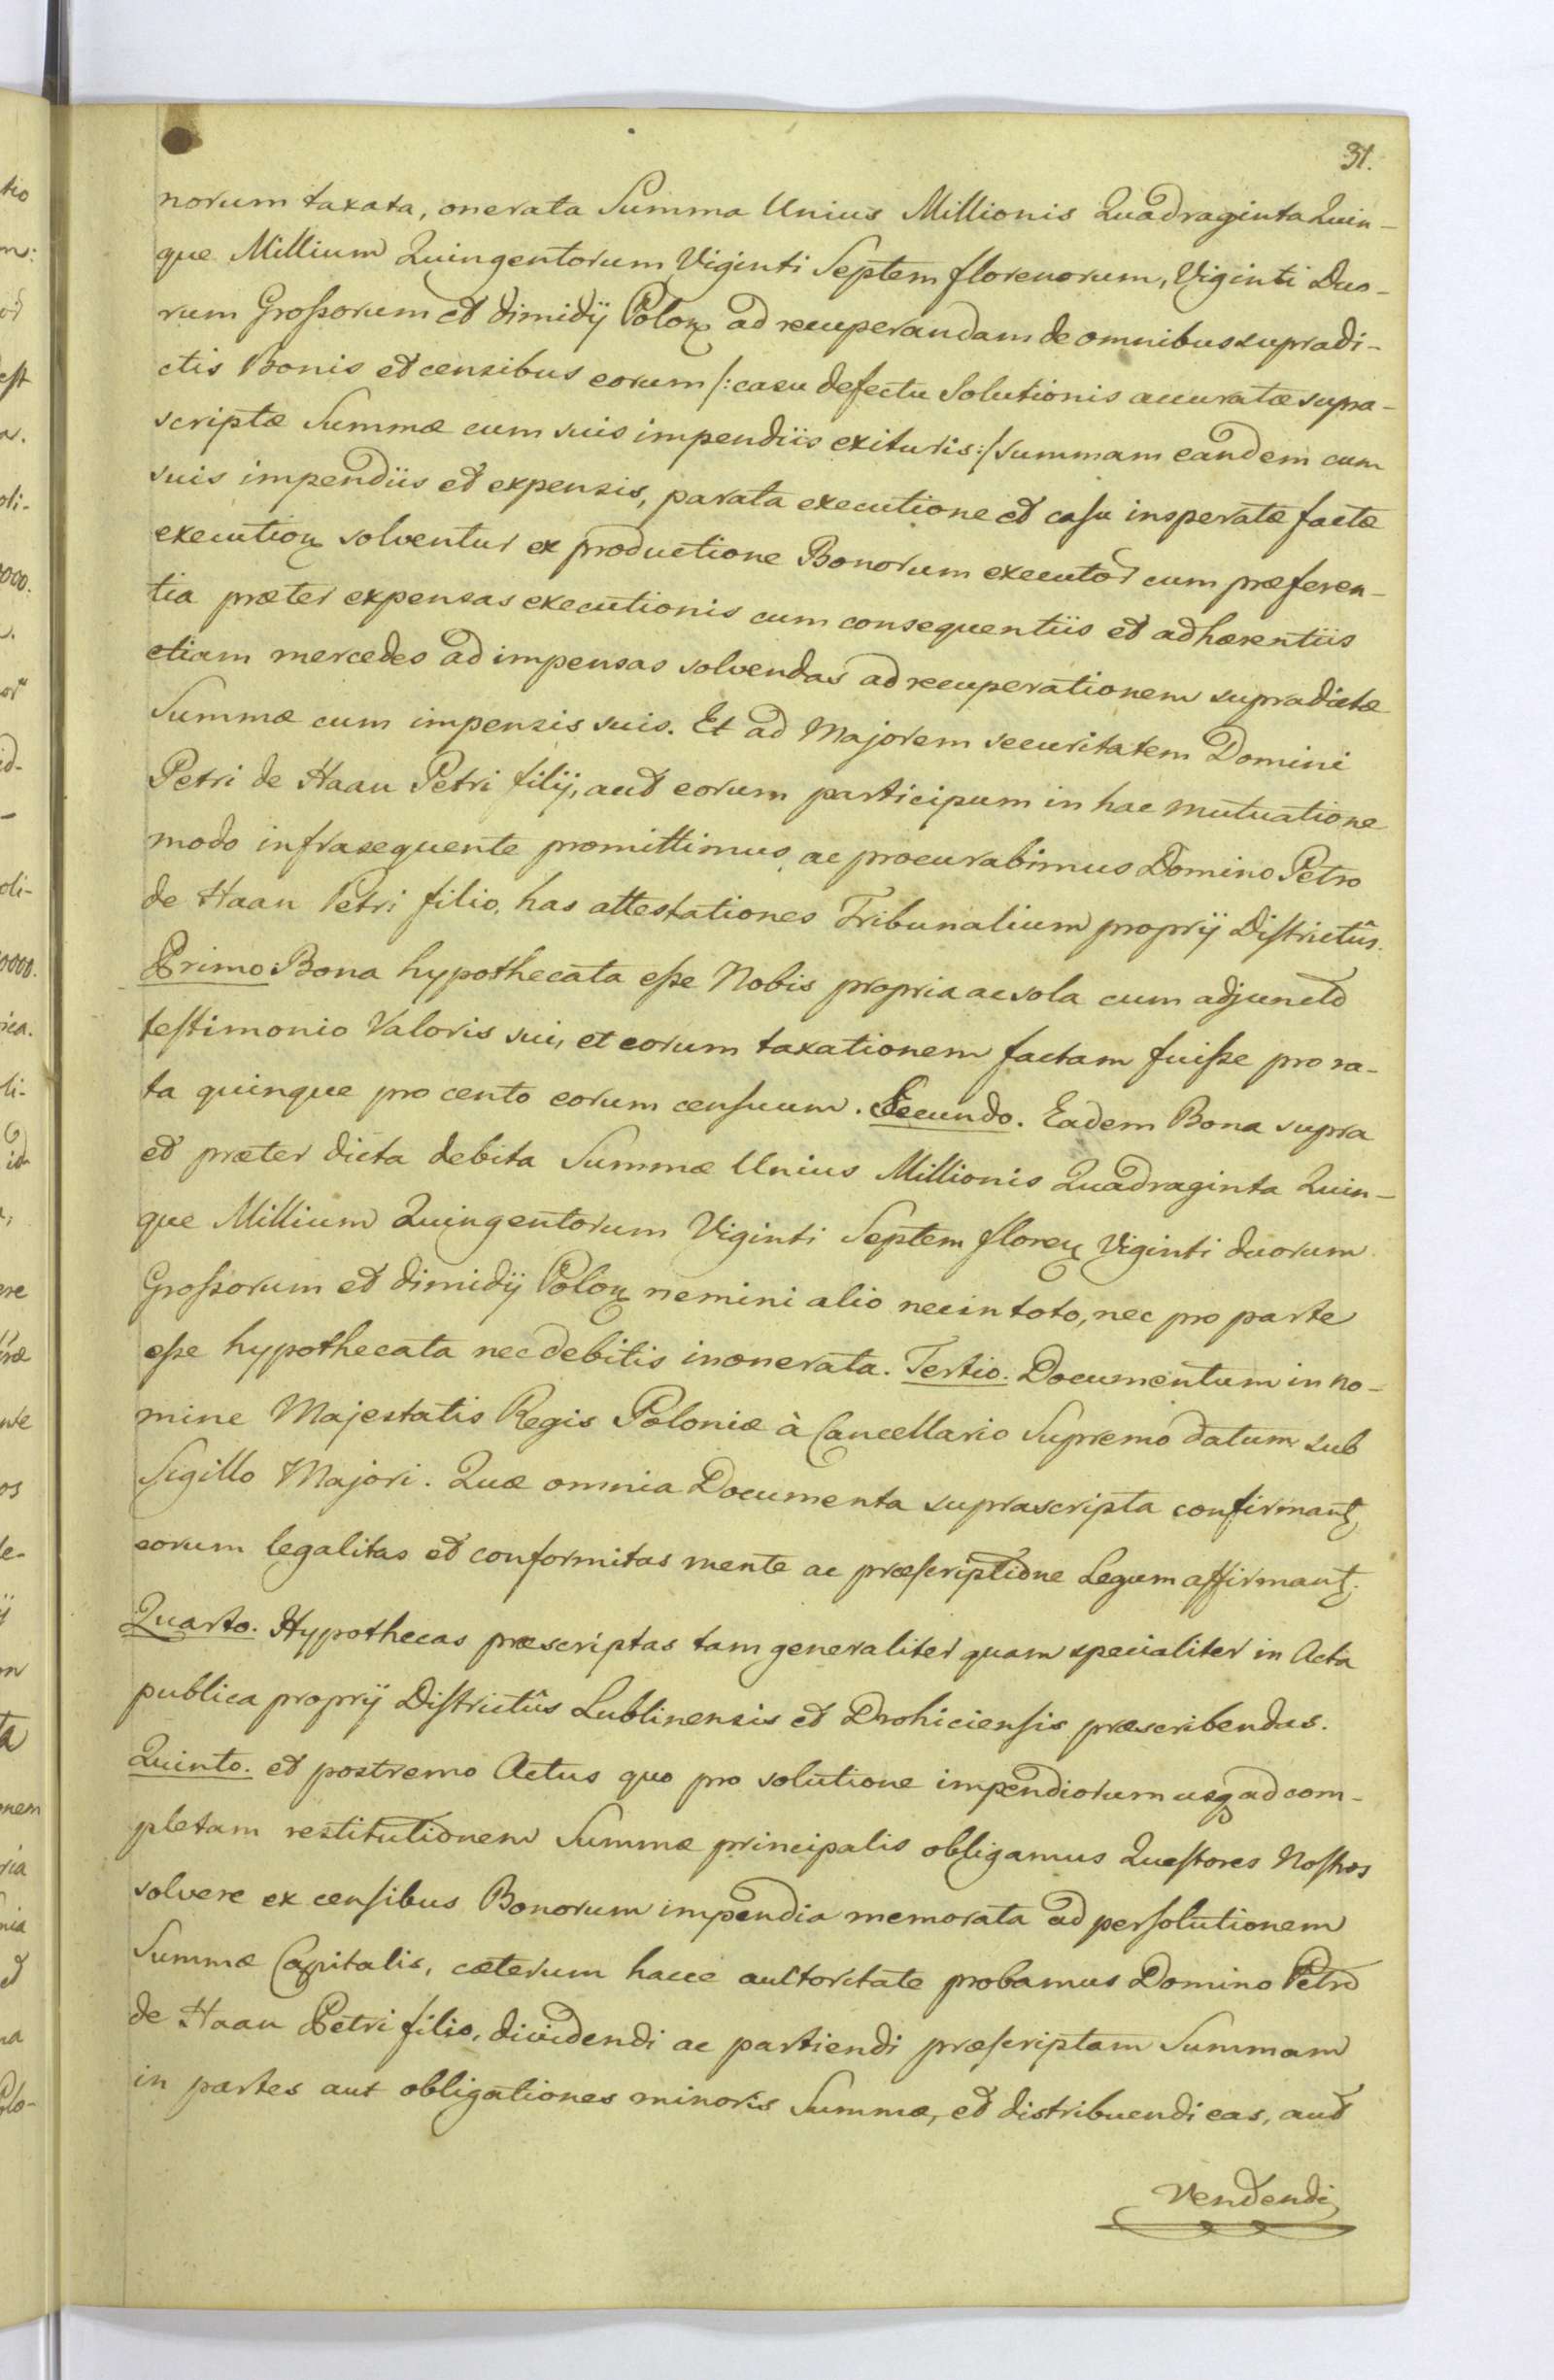 31.
norum taxata, onerata Summa Unius Millionis Quadraginta Quin-
que Millium Quingentorum Viginti Septem florenorum, Viginti Duo-
rum Großorum et dimidÿ Polon ad recuperandam de omnibus supradi-
ctis Bonis et censibus eorum /: casu defectu Solutionis accuratæ supra-
scriptæ Summæ cum suis impendiis exituris :/ summam eandem cum
suis impendiis et expensis, parata executione et casu insperatæ factæ
execution solventur ex productione Bonorum executor cum præferen-
tia præter expensas executionis cum consequentiis et adhærentiis
etiam mercedes ad impensas solvendas ad recuperationem supradictæ
Summæ cum impensis suis. Et ad Majorem securitatem Domini
Petri de Haan Petri filÿ, aut eorum participum in hac mutuatione
modo infrasequente promittimus ac procurabimus Domino Petro
de Haan Petri filio, has attestationes Tribunalium propriÿ Districtûs.
Primo: Bona hypothecata eße Nobis propria ac sola cum adjuncto
testimonio Valoris sui, et eorum taxationem factam fuiße pro ra-
ta quinque pro cento eorum censuum. Secundo. Eadem Bona supra
et præter dicta debita Summæ Unius Millionis Quadraginta Quin-
que Millium Quingentorum Viginti Septem floren Viginti duorum
Großorum et dimidÿ Polon nemini alio nec in toto, nec pro parte
eße hypothecata nec debitis inonerata. Tertio. Documentum in no-
mine Majestatis Regis Poloniæ à Cancellario Supremo datum sub
Sigillo Majori. Quæ omnia Documenta suprascripta confirmant,
eorum legalitas et conformitas mente ac præscriptione Legum affirmant.
Quarto. Hypothecas præscriptas tam generaliter quam specialiter in Acta
publica propriÿ Districtûs Lublinensis et Drohiciensis præscribendas.
Quinto. et postremo Actus quo pro solutione impendiorum usq ad com-
pletam restitutionem Summæ principalis obligamus Quæstores Nostros
solvere ex censibus Bonorum impendia memorata ad persolutionem
Summæ Capitalis, cæterum hacce auctoritate probamus Domino Petro
de Haan Petri filio, dividendi ac partiendi præscriptam Summam
in partes aut obligationes minoris Summæ, et distribuendi eas, aut
Vendendi